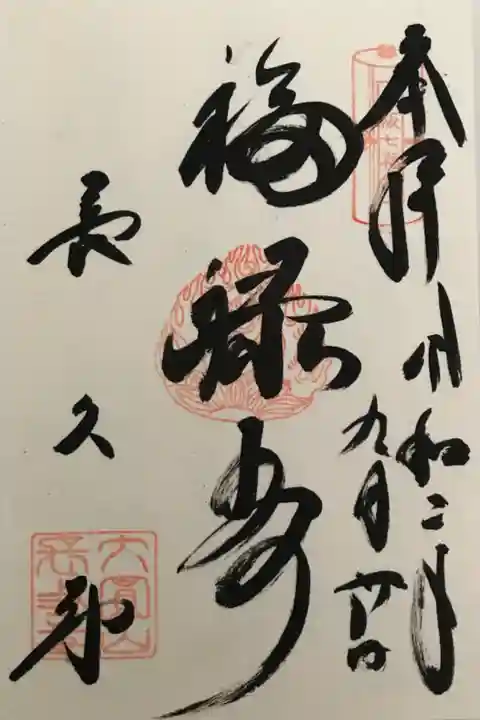 奉拝 令和二年
九月廿日
福禄寿
長久寺